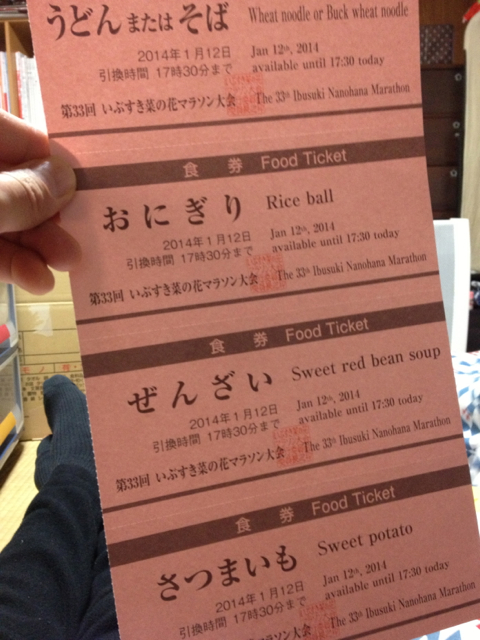 うどん または そば Wheat noodle or Buck wheat noodle
2014年1月12日 Jan 12th, 2014
引換時間 17時30分まで available until 17:30 today
第33回 いぶすき菜の花マラソン大会 The 33th Ibusuki Nanohana Marathon
食 券 Food Ticket
おにぎり Rice ball
2014年1月12日 Jan 12th, 2014
引換時間 17時30分まで available until 17:30 today
第33回 いぶすき菜の花マラソン大会 The 33th Ibusuki Nanohana Marathon
食 券 Food Ticket
ぜんざい Sweet red bean soup
2014年1月12日 Jan 12th, 2014
引換時間 17時30分まで available until 17:30 today
第33回 いぶすき菜の花マラソン大会 The 33th Ibusuki Nanohana Marathon
食 券 Food Ticket
さつまいも Sweet potato
2014年1月12日 Jan 12th, 2014
引換時間 17時30分まで available until 17:30 today
いぶすき菜の花マラソン大会 The 33th Ibusuki Nanohana Marathon